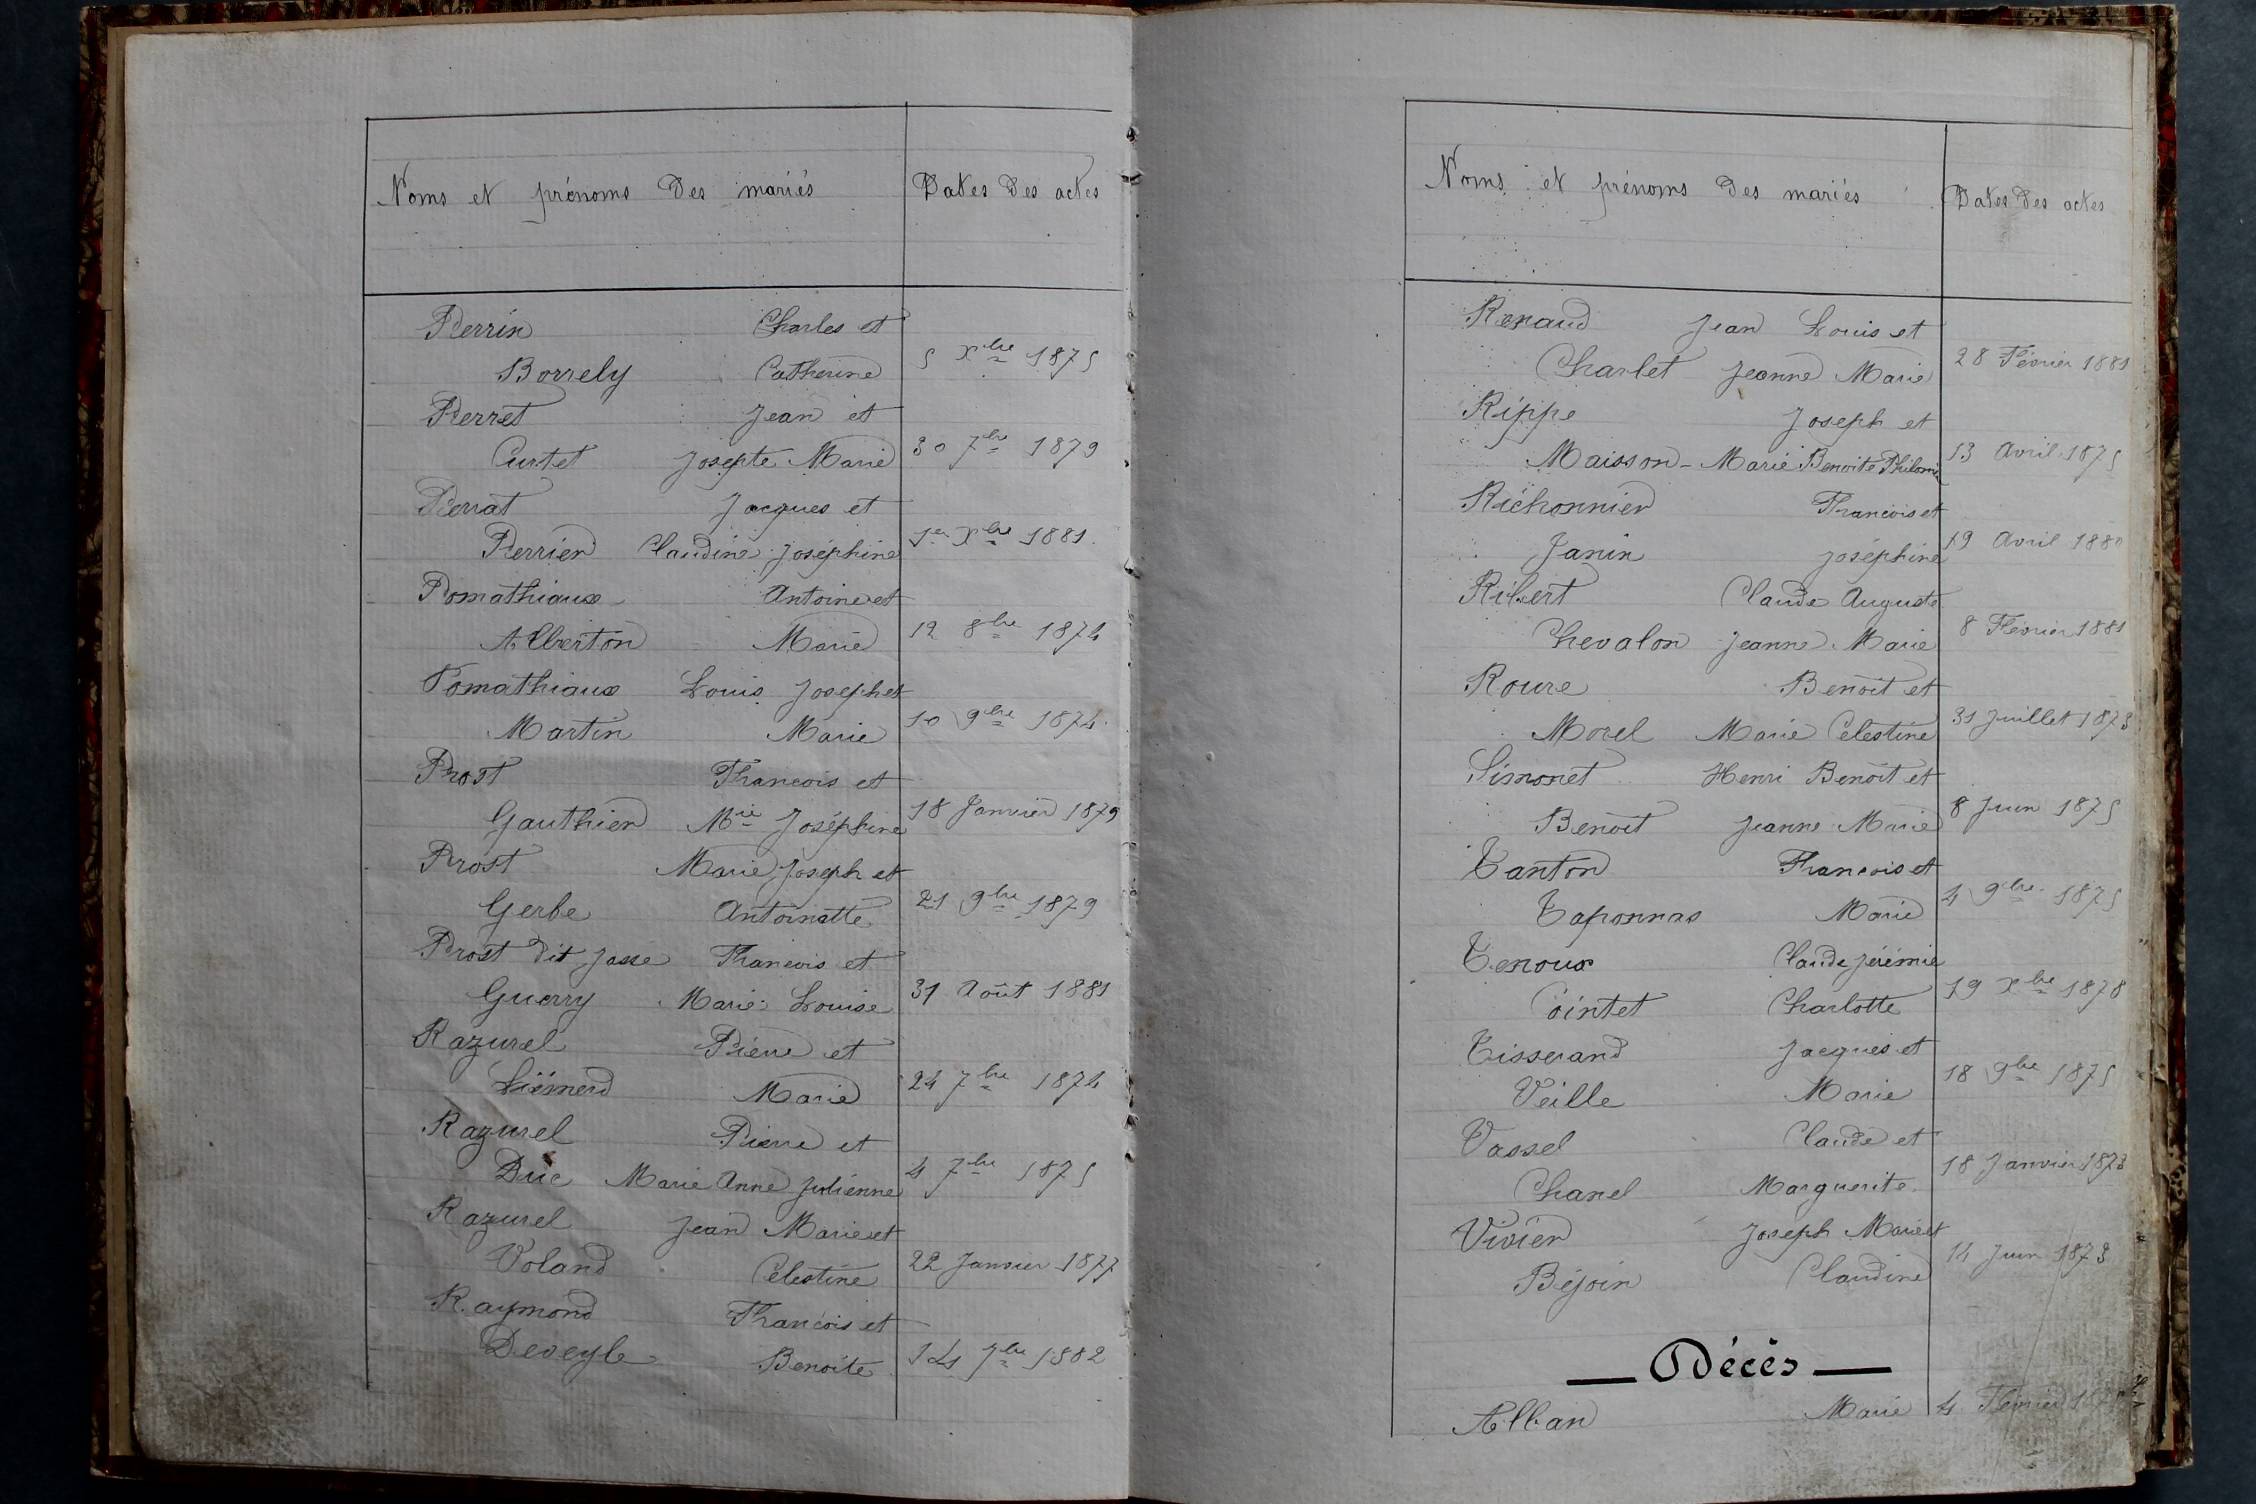 Noms et prénoms des mariés Dates des actes
Perrin Charles et
Borrely Catherine 5 Xbre 1875
Perret Jean et
Curtet Josepte Marie 30 7bre 1879
Perrat Jacques et
Perrier Claudine Joséphine 1er Xbre 1881
Pomathiaux Antoine et
Alberton Marie 12 8bre 1874
Pomathiaux Louis Joseph et
Martin Marie 10 9bre 1874
Prost François et
Gauthier Mie Joséphine 18 Janvier 1879
Prost Marie Joseph et
Gerbe Antoinette 21 9bre 1879
Prost dit Jasse François et
Guerry Marie Louise 31 Août 1881
Razurel Pierre et
Marie 24 7bre 1874
Razurel Pierre et
Duc Marie Anne Julienne 4 7bre 1875
Razurel Jean Marie et
Voland Célestine 22 Janvier 1877
Raymond François et
Deveyle Benoite 14 7bre 1882
Noms et prénoms des mariés Dates des actes
Renaud Jean Louis et
Charlet Jeanne Marie 28 Février 1881
Rippe Joseph et
Maisson Marie Benoite 13 Avril 1875
Richonnier François et
Janin Joséphine 19 Avril 1880
Ribert Claude Auguste
Chevalon Jeanne Marie 8 Février 1881
Roure Benoit et
Morel Marie Célestine 31 Juillet 1873
Simonet Henri Benoît et
Benoît Jeanne Marie 8 Juin 1875
Tanton François et
Taponnas Marie 4 9bre 1875
Tenoux Claude Jérémie
Cointet Charlotte 19 Xbre 1878
Tisserand Jacques et
Veille Marie 18 9bre 1875
Vassel Claude et
Chanel Marguerite 18 Janvier 1873
Vivier Joseph Marie et
Béjoin Claudine 14 Juin 1873
Décès
Alban Marie 4 Février